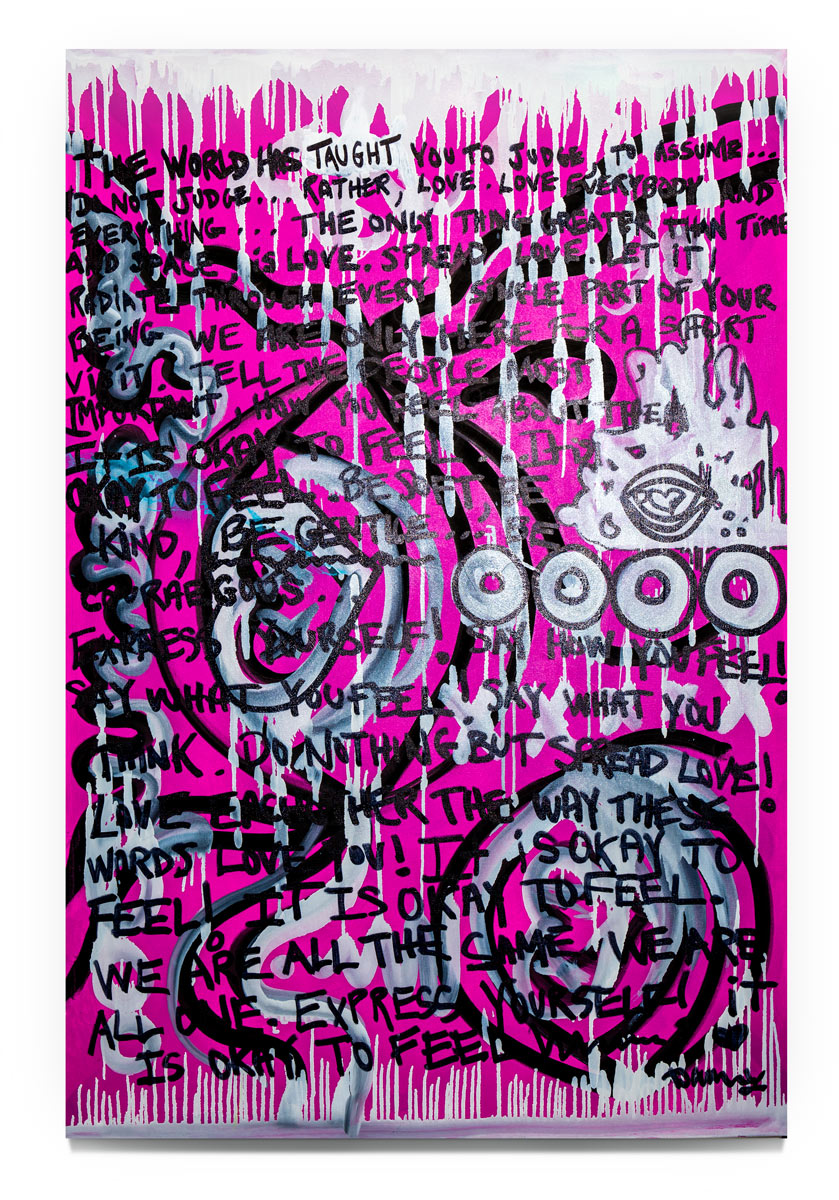 THE WORLD HAS TAUGHT YOU TO JUDGE, TO ASSUME...
DO NOT JUDGE... RATHER, LOVE. LOVE EVERYBODY AND
EVERYTHING... THE ONLY THING GREATER THAN TIME
AND SPACE IS LOVE. SPREAD LOVE. LET IT
RADIATE THROUGH EVERY SINGLE PART OF YOUR
BEING. WE ARE ONLY HERE FOR A SHORT
VISIT. TELL THE PEOPLE MOST
IMPORTANT, HOW YOU FEEL ABOUT THEM
IT IS OKAY TO FEEL. IT IS
OKAY TO FEEL. BE SOFT, BE
KIND, BE GENTLE... BE
COURAEGOUS.
EXPRESS YOURSELF! SAY HOW YOU FEEL!
SAY WHAT YOU FEEL! SAY WHAT YOU
THINK. DO NOTHING BUT SPREAD LOVE!
LOVE EACH OTHER THE WAY THESE
WORDS LOVE YOU! IT IS OKAY TO
FEEL! IT IS OKAY TO FEEL.
WE ARE ALL THE SAME. WE ARE
ALL ONE. EXPRESS YOURSELF! IT
IS OKAY TO FEEL